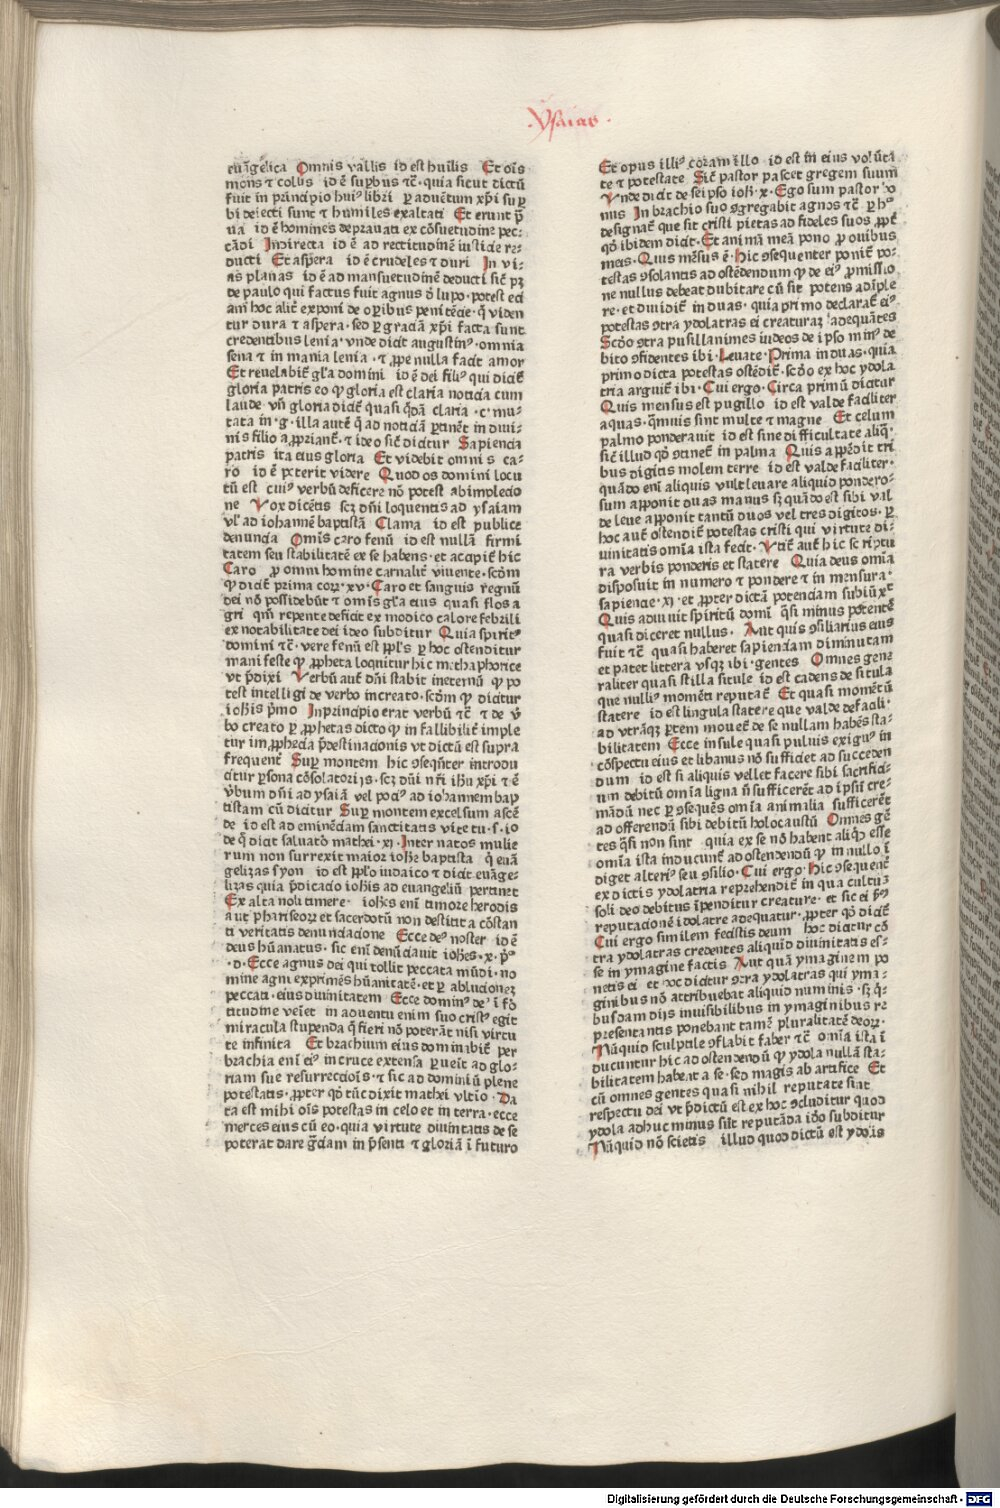 Ysaias
euāgelica Omnis vallis id est huīlis Et oīs
mons ⁊ collis id ē supbus ⁊c̄ · quia sicut dictū
fuit in principio huiꝰ libri ꝑ aduētum xp̄i suꝑ
bi deiecti sunt ⁊ humiles exaltati Et erunt p̄
ua id ē homines deprauati ex cōsuetudine pec⸗
cādi In directa id ē ad rectitudinē iusticie re⸗
ducti Et aspera id ē crudeles ⁊ duri In vi⸗
as planas id ē ad mansuetudinē deducti sic̄ pꝫ
de paulo qui factus fuit agnus d̄ lupo · potest eci
am hoc alit̄ exponi de oꝑibus penitēcie · q̄ viden
tur dura ⁊ aspera · sed ꝑ graciā xp̄i facta sunt
credentibus lenia · vnde dicit augustinꝰ · omnia
seua ⁊ in mania lenia · ⁊ ꝓpe nulla facit amor
Et reuelabit̄ gl̄a domini id ē dei filiꝰ qui dicit̄
gloria patris eo ꝙ gloria est claria noticia cum
laude · vn̄ gloria dicit̄ quasi q̄dā claria · c · mu⸗
tata in · g · illa autē q̄ ad noticiā ꝑtinēt in diui⸗
nis filio aꝓpriant̄ · ⁊ ideo sic̄ dicitur Sapiencia
patris ita eius gloria Et videbit omnis ca⸗
ro id ē poterit videre Quod os domini locu
tū est cuiꝰ verbū deficere nō potest ab impleccio
ne Vox dicētis scꝫ dn̄i loquentis ad ysaiam
vl̓ ad iohannē baptistā Clama id est publice
denuncia Om̄is caro fenū id est nullā firmi
tatem seu stabilitatē ex se habens · et accipit̄ hic
Caro ꝓ omni homine carnalit̄ viuente · scd̄m
ꝙ dicit̄ prima corꝝ · xv · Caro et sanguis regnū
dei nō possidebūt ⁊ omīs gl̄a eius quasi flos a
gri qm̄ repente deficit ex modico calore febrili
ex notabilitate dei ideo subditur Quia spiritꝰ
domini ⁊c̄ · vere fenū est ppl̓s ꝑ hoc ostenditur
manifeste ꝙ ꝓpheta loquitur hic methaphorice
vt p̄dixi Verbū aut̄ dn̄i stabit in eternū ꝙ po
test intelligi de verbo increato · scd̄m ꝙ dicitur
ioh̄is pꝰmo In principio erat verbū ⁊c̄ ⁊ de v̄
bo creato ꝑ ꝓphetas dicto ꝙ in fallibilit̄ imple
tur in ꝓphecia p̄destinacionis vt dictū est supra
frequent̄ Suꝑ montem hic ↄseqn̄ter introdu
citur ꝑsona cōsolatorijs · scꝫ dn̄i nr̄i ih̄u xp̄i ⁊ ē
v̄bum dn̄i ad ysaiā vel pociꝰ ad iohannem bap
tistam cū dicitur Suꝑ montem excelsum ascē
de id est ad eminēciam sanctitatis vite tu · s · io
de q̄ dicit saluator̄ mathei · xj · Inter natos mulie
rum non surrexit maior ioh̄e baptista q̄ euā
gelizas syon id est ppl̓o iudaico ⁊ dicit̄ euāge⸗
lizas quia p̄dicacio ioh̄is ad euangeliū pertinet
Exalta noli timere ioh̄es eni timore herodis
aut phariseoꝝ et sacerdotū non destitit a cōstan
ti veritatis denunciacione Ecce deꝰ noster id ē
deus hūanatus · sic eni denūciauit ioh̄es · x · pꝰ
· d · Ecce agnus dei qui tollit peccata mūdi · no
mine agni exprimēs hūanitatē · et ꝑ ablucionez
peccati · eius diuinitatem Ecce dominꝰ deꝰ ī fō
titudine veīet in aduentu enim suo cristꝰ egit
miracula stupenda q̄ fieri nō poterāt nisi virtu
te infinita Et brachium eius dominabit̄ per
brachia eni eiꝰ in cruce extensa ꝑueīt ad glo⸗
riam sue resurreccioīs · ⁊ sic ad dominiū plene
potestatis · ꝓpter qd̓ tūc dixit mathei vltio · Da
ta est mihi oīs potestas in celo et in terra · ecce
merces eius cū eo · quia virtute diuinitatis de se
poterat dare gr̄am in p̄senti ⁊ gloriā ī futuro
Et opus illiꝰ coram illo id est in eius volūta
te ⁊ potestate Sic̄ pastor pascet gregem suum
Vnde dicit de seipso ioh̄ · x · Ego sum pastor bo
nus In brachio suo ↄgregabit agnos ⁊c̄ ꝑ hꝰ
designat̄ que sit cristi pietas ad fideles suos ꝓpt̄
qd̓ ibidem dicit · Et animā meā pono ꝓ ouibus
meis · Quis mēsus ē · Hic ↄsequenter ponit̄ po⸗
testas ↄsolantis ad ostēdendum ꝙ de eiꝰ ꝓmissio
ne nullus debeat dubitare cū sit potens adīple
re · et diuidit̄ in duas · quia primo declarat̄ eiꝰ
potestas ↄtra ydolatras ei creaturaꝫ adequātes
Scd̓o ↄtra pusillanimes iudeos de ipso minꝰ de
bito ↄfidentes ibi · Leuate · Prima in duas · quia
primo dicta potestas ostēdit̄ · scd̓o ex hoc ydola
tria arguit̄ ibi · Cui ergo · Circa primū dicitur
Quis mensus est pugillo id est valde faciliter
aquas · q̄muis sint multe ⁊ magne Et celum
palmo ponderauit id est sine difficultate aliqꝰ
sic̄ illud qd̓ ↄtinet̄ in palma Quis appēdit tri
bus digitis molem terre id est valde faciliter ·
quādo eni aliquis vult leuare aliquid pondero⸗
sum apponit duas manus sꝫ quādo est sibi val
de leue apponit tantū duos vel tres digitos · ꝑ
hoc aut̄ ostendit̄ potestas cristi qui virtute di⸗
uinitatis omīa ista fecit · Vtit̄ aut̄ hic scriptu
ra verbis ponderis et statere Quia deus omīa
disposuit in numero ⁊ pondere ⁊ in mensura ·
sapiencie · xj · et ꝓpter dictā potenciam subiūxt̄
Quis adiuuit spiritū domī q̄si minus potentē
quasi diceret nullus · Aut quis ↄsiliarius eius
fuit ⁊c̄ quasi haberet sapienciam diminutam
et patet littera vsqꝫ ibi · gentes Omnes gene
raliter quasi stilla situle id est cadens de situla
que nulliꝰ momēti reputat̄ Et quasi momētū
statere id est lingula statere que valde de facili ·
ad vtrāqꝫ ꝑtem mouet̄ de se nullam habēs sta⸗
bilitatem Ecce insule quasi puluis exiguꝰ in
cōspectu eius et libanus nō sufficiet ad succeden
dum id est si aliquis vellet facere sibi sacrifici⸗
um debitū omīa ligna n̄ sufficerēt ad ip̄m cre⸗
mādū nec ꝑ ↄsequēs omīa animalia sufficerēt
ad offerendū sibi debitū holocaustū Omnes gē
tes q̄si non sint quia ex se nō habent aliqd̓ esse
omīa ista inducunt̄ ad ostendendū ꝙ in nullo ī
diget alteriꝰ seu ↄsilio · Cui ergo · Hic ↄsequent̄
ex dictis ydolatria reprehendit̄ in qua cultuꝫ
soli deo debitus īpenditur creature · et sic ei pꝰs
reputacionē idolatre adequatur · ꝓpter qd̓ dicit̄
Cui ergo similem fecistis deum hoc dicitur cō
tra ydolatras credentes aliquid diuinitatis es⸗
se in ymagine factis Aut quā ymaginem po
netis ei et hoc dicitur ↄtra ydolatras qui yma⸗
ginibus nō attribuebāt aliquid numinis · sꝫ q̄⸗
busdam diis inuisibilibus in ymaginibus re
presentatis ponebant tamē pluralitatē deoꝝ ·
Nūquid sculptile ↄflabit faber ⁊c̄ omīa ista ī
ducuntur hic ad ostendendū ꝙ ydola nullā sta⸗
bilitatem habeāt a se · sed magis ab artifice Et
cū omnes gentes quasi nihil reputate sint
respectu dei vt p̄dictū est ex hoc ↄcluditur quod
ydola adhuc minus sūt reputāda ido subditur
Nūquid nō scietis illud quod dictū est ydolis
Digitalisierung gefördert durch die Deutsche Forschungsgemeinschaft - DFG